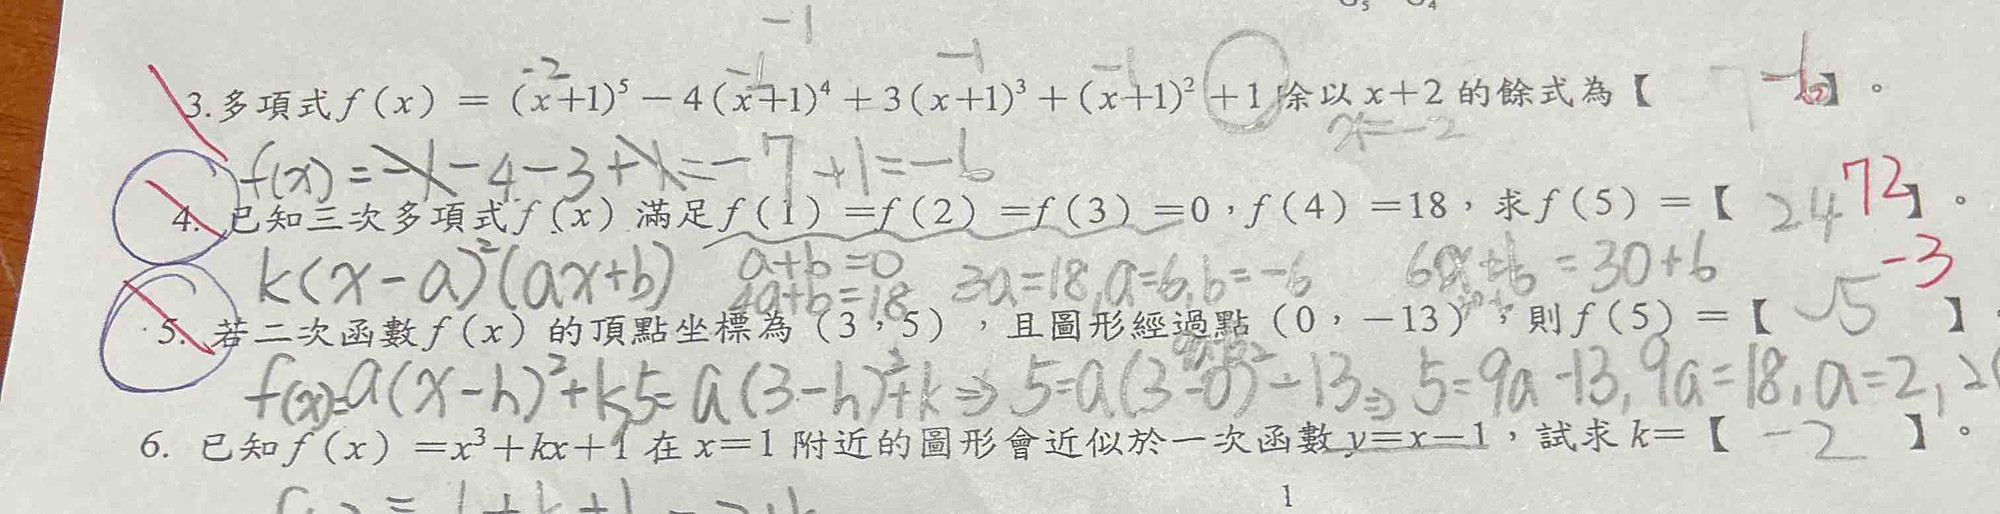 -1
-2 -1 -1 -1
3.多項式 f(x) = (x+1)⁵ - 4(x+1)⁴ + 3(x+1)³ + (x+1)² +1 除以 x+2 的餘式為【 7 -6 】。
x=-2
f(x) = -1 - 4 - 3 + 1 = -7 + 1 = -6
4. 已知三次多項式 f(x) 滿足 f(1) =f(2) =f(3) =0,f(4) =18,求 f(5) =【 24 72 】。
k(x-a)²(ax+b) a+b=0 3a=18, a=6, b=-6 = 30+6
4a+b=18
5. 若二次函數 f(x) 的頂點坐標為(3,5),且圖形經過點(0,-13),則 f(5) =【 5 -3 】
f(x)=a(x-h)²+k 5=a(3-h)²+k ⇒ 5=a(3-0)²-13 ⇒ 5=9a-13, 9a=18, a=2,
6. 已知 f(x) =x³+kx+1 在 x=1 附近的圖形會近似於一次函數 y=x-1,試求 k=【 -2 】。
1